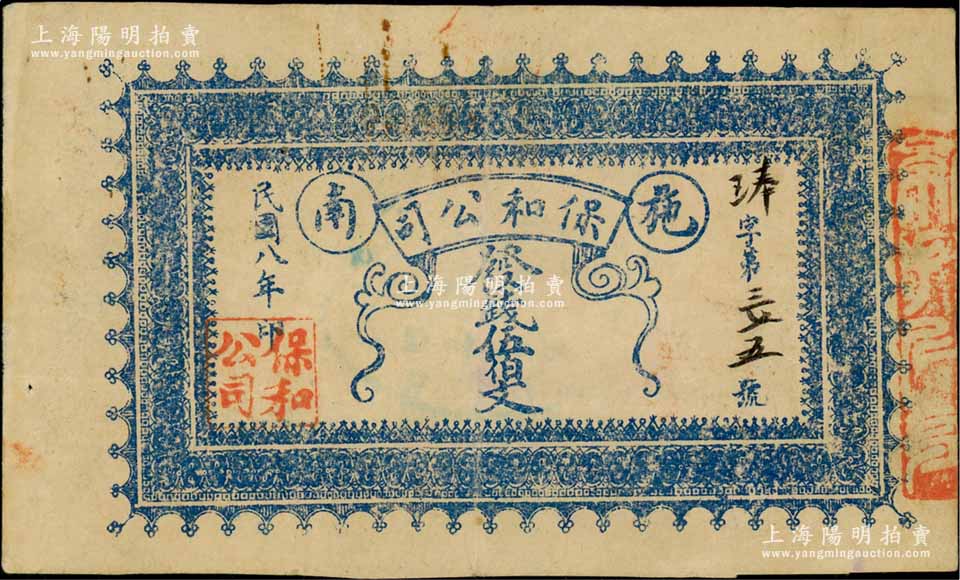 上海陽明拍賣
www.yangmingauction.com
施南
保和公司
發錢伍佰文
字第
五
號
民國八年 印
保和公司
上海陽明拍賣
www.yangmingauction.com
上海陽明拍賣
www.yangmingauction.com